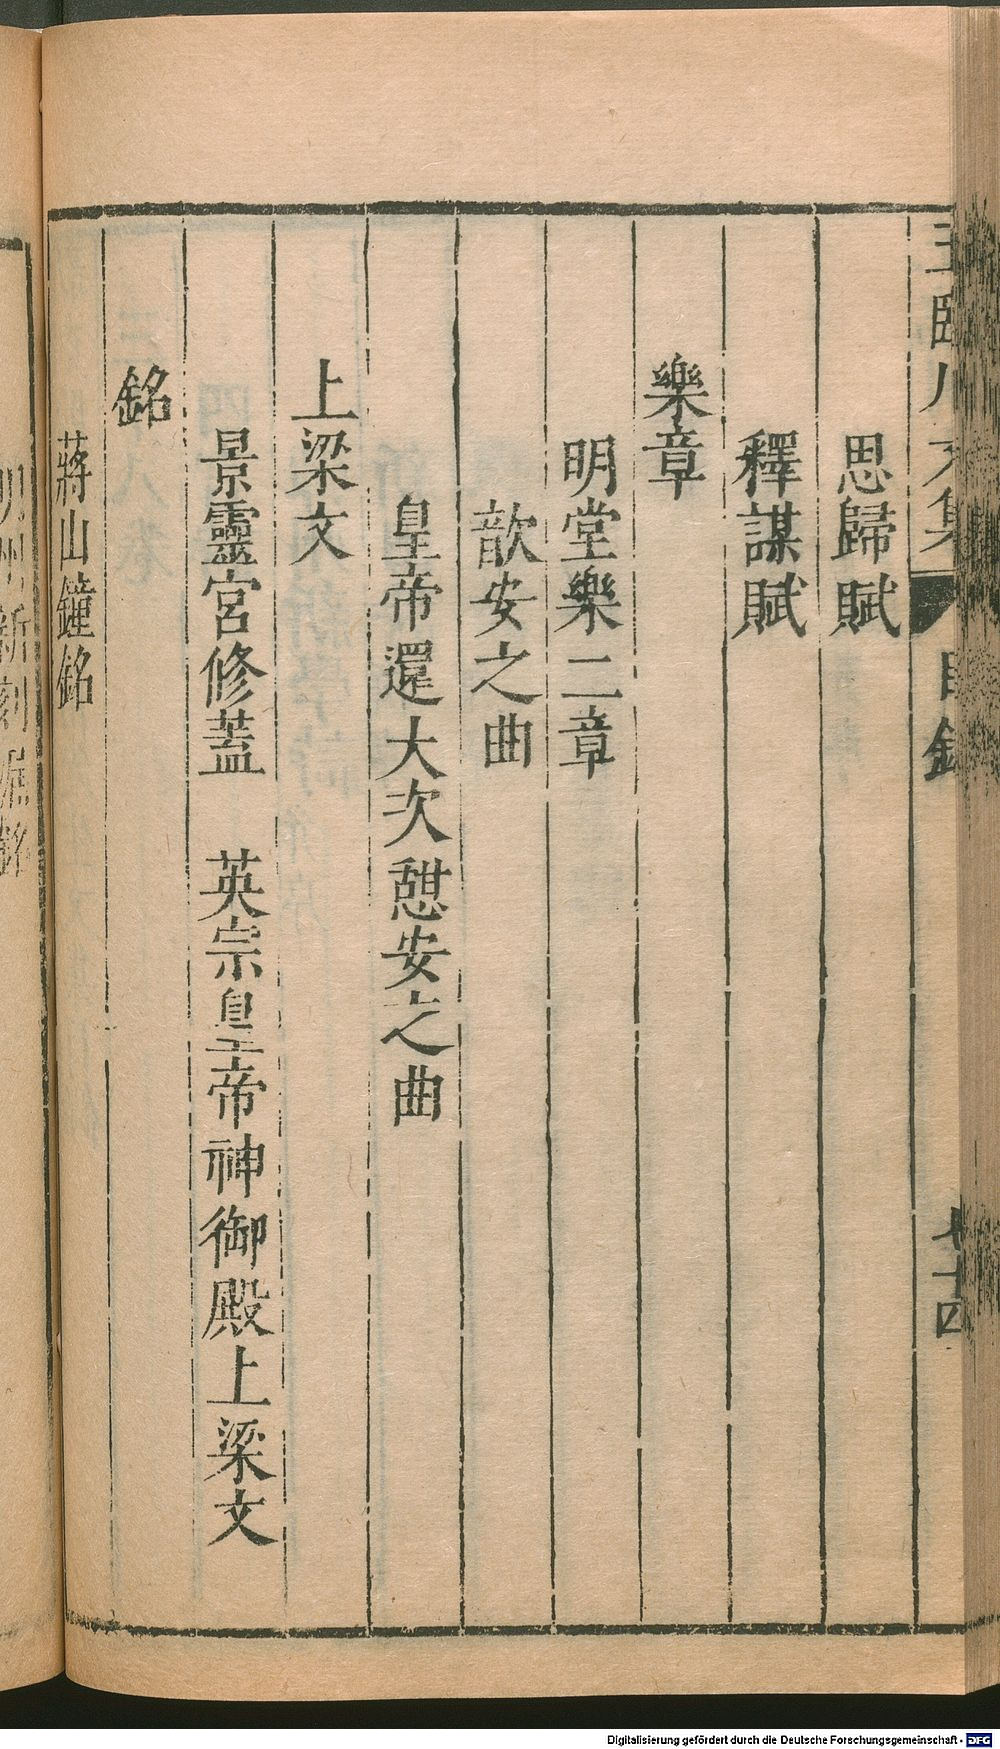 思歸賦
釋謀賦
樂章
明堂樂二章
歆安之曲
皇帝還大次憇安之曲
上梁文
景靈宮修蓋　英宗皇帝神御殿上梁文
銘
蔣山鐘銘
目錄
七十四
Digitalisierung gefördert durch die Deutsche Forschungsgemeinschaft - DFG